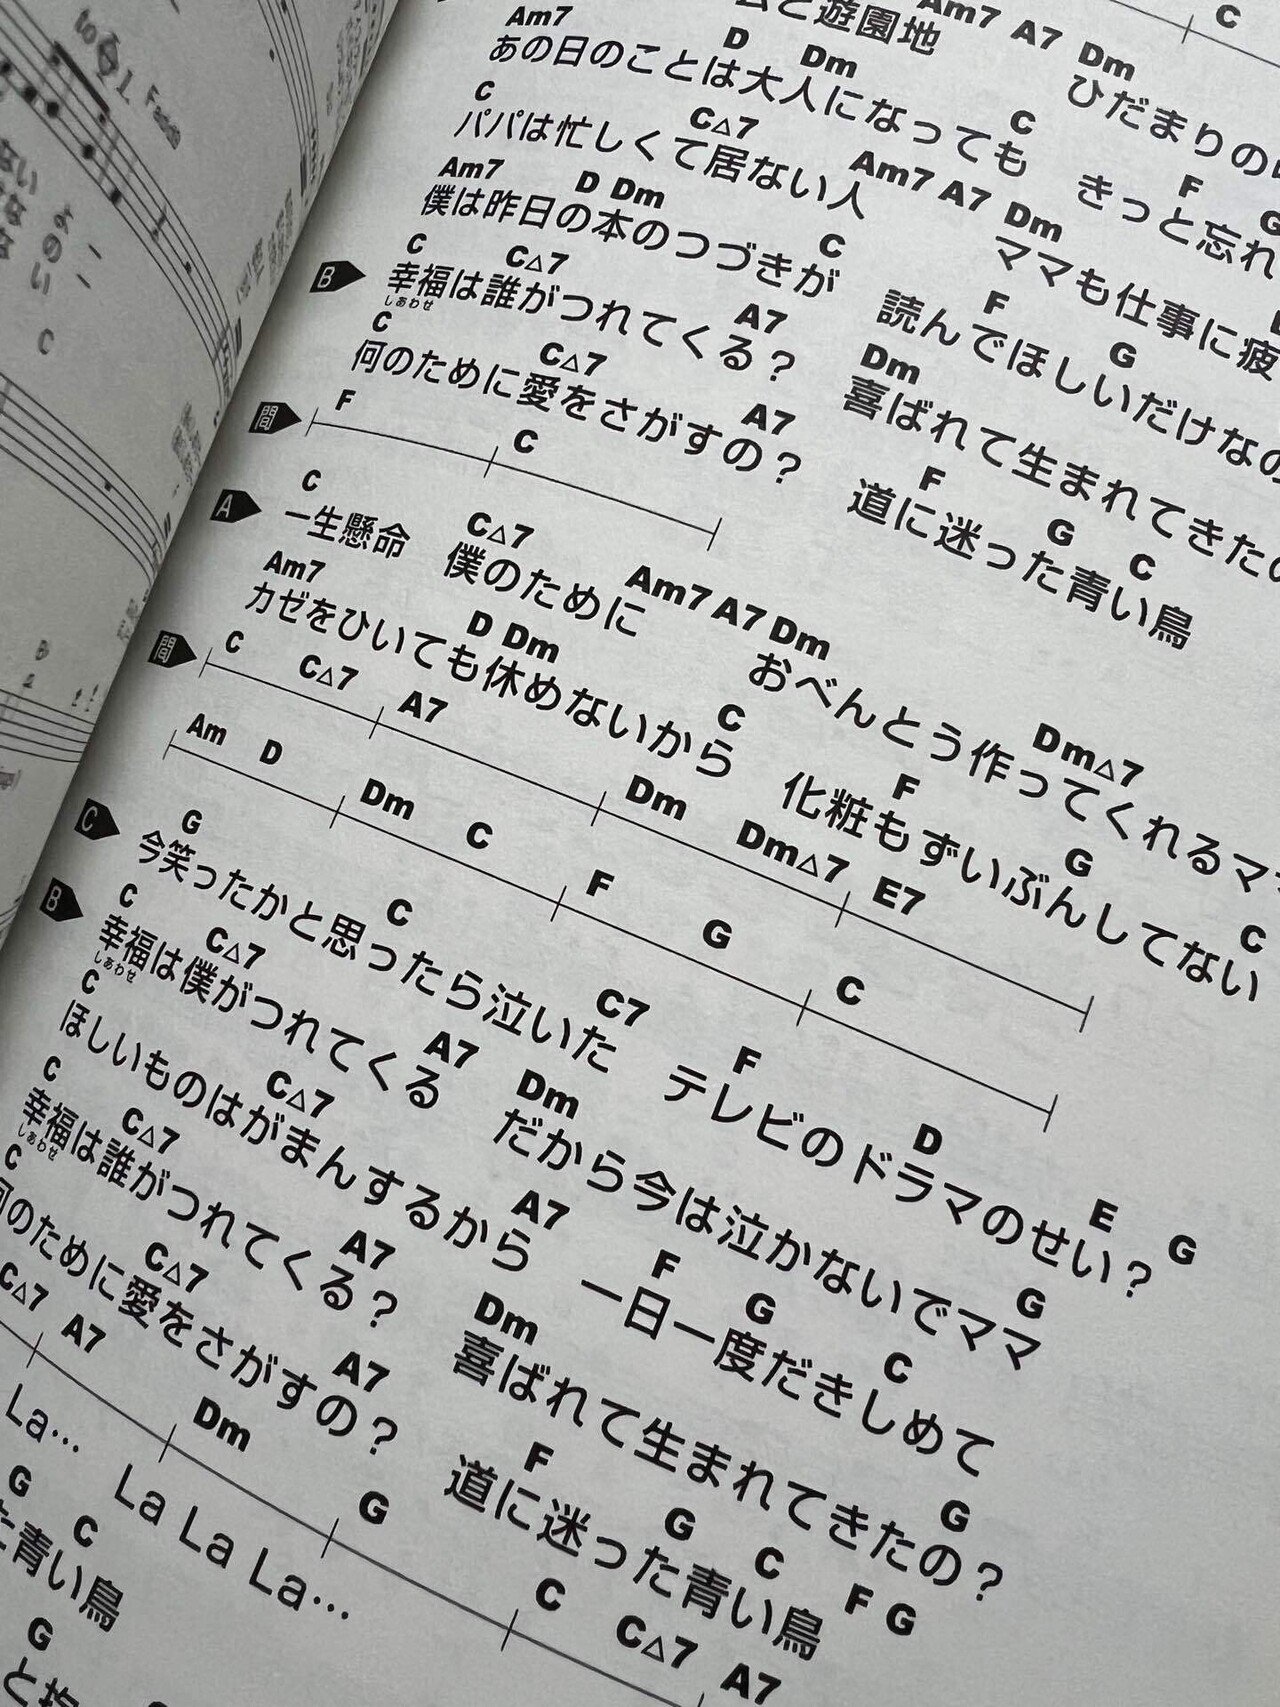 to Fade
Am7 A7 Dm C
ムと遊園地 ひだまりの
Am7 D Dm C F G
あの日のことは大人になっても きっと忘れ
C C△7 Am7 A7 Dm
パパは忙しくて居ない人 ママも仕事に疲
Am7 D Dm C F G
僕は昨日の本のつづきが 読んでほしいだけなの
B C C△7 A7 Dm
幸福は誰がつれてくる？ 喜ばれて生まれてきたの
しあわせ
C C△7 A7 F G C
何のために愛をさがすの？ 道に迷った青い鳥
間 F C
A C C△7 Am7 A7 Dm Dm△7
一生懸命 僕のために おべんとう作ってくれるママ
Am7 D Dm C F G C
カゼをひいても休めないから 化粧もずいぶんしてない
間 C C△7 A7 Dm Dm△7 E7
Am D Dm C F G C
C G C C7 F D E G
今笑ったかと思ったら泣いた テレビのドラマのせい？
B C C△7 A7 Dm G
幸福は僕がつれてくる だから今は泣かないでママ
しあわせ
C C△7 A7 F G C
ほしいものはがまんするから 一日一度だきしめて
C C△7 A7 Dm G
幸福は誰がつれてくる？ 喜ばれて生まれてきたの？
しあわせ
C C△7 A7 F G C F G
何のために愛をさがすの？ 道に迷った青い鳥
C△7 A7 Dm G C C△7 A7
La… La La La…
G C
た青い鳥
G